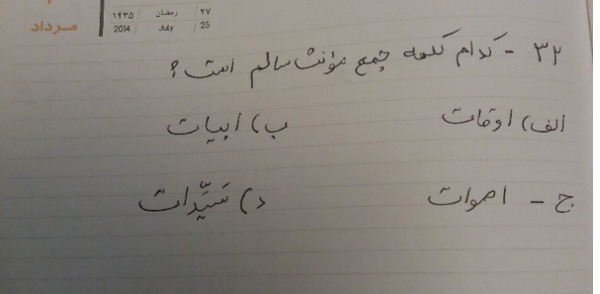 مرداد
۲۷ / رمضان / ۱۴۳۵
25 / July / 2014
۳۲ - کدام کلمه جمع مؤنث سالم است؟
الف) اوقات ب) ابیات
ج - اصوات د) سَیِّدات